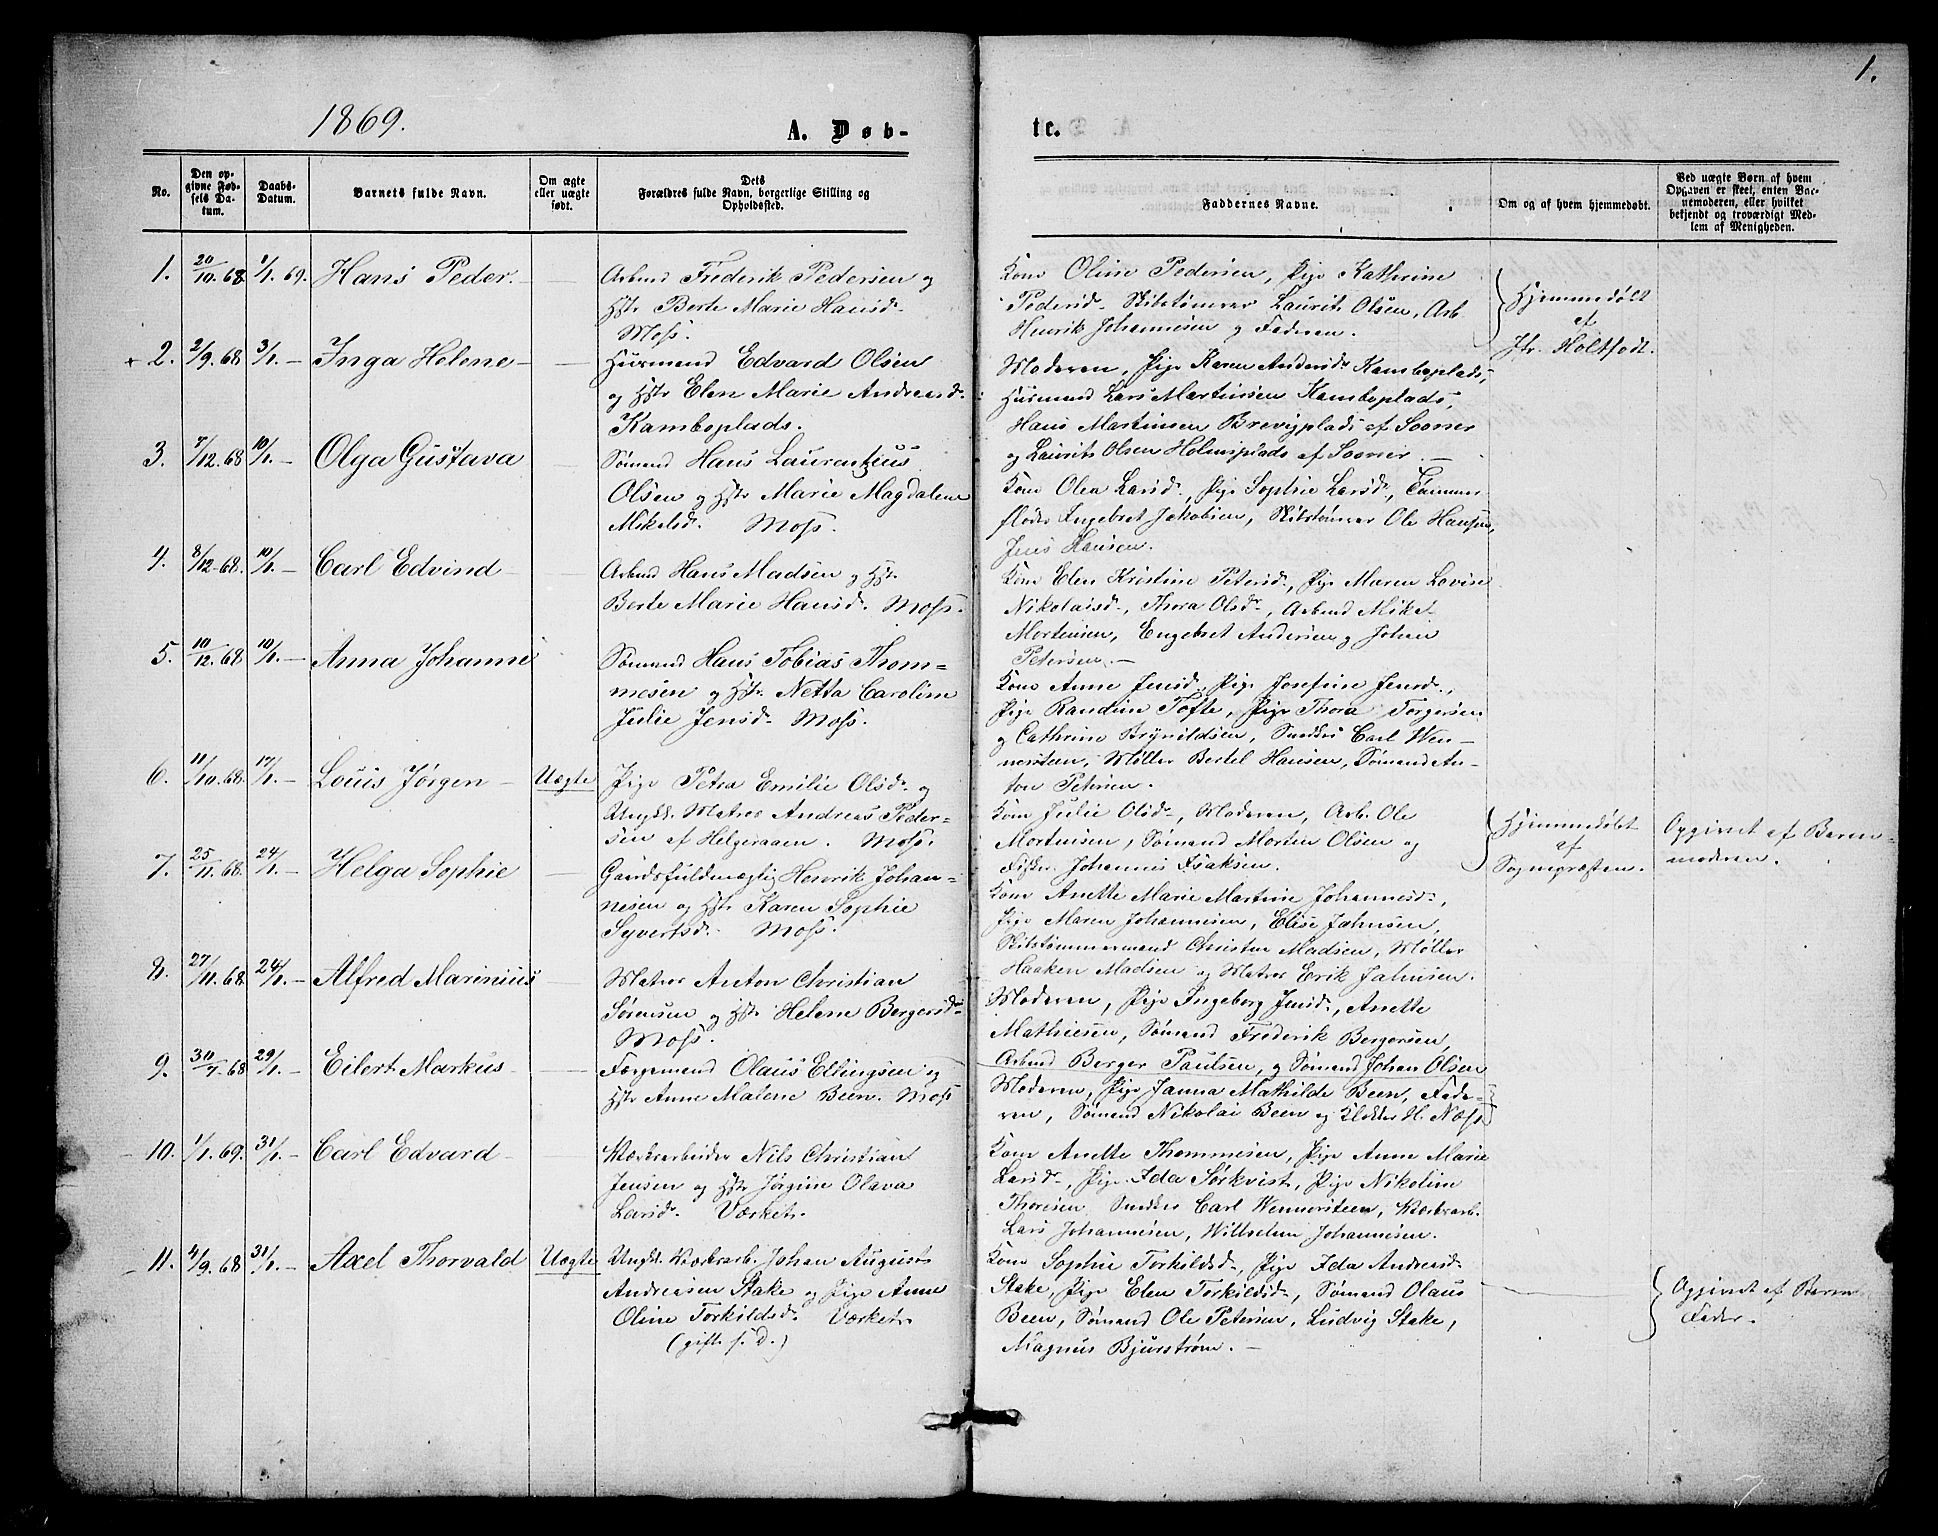 1.
1869.
A. Døb-
te.
No.
Den op-
givne Fød-
sels Da-
tum.
Daabs-
Datum.
Barnets fulde Navn.
Om ægte
eller uægte
født.
Dets
Forældres fulde Navn, borgerlige Stilling og
Opholdssted.
Faddernes Navne.
Om og af hvem hjemmedøbt.
Ved uægte Børn af hvem
Opgaven er skeet, enten Bar-
nemoderen, eller hvilket
bekjendt og troværdigt Med-
lem af Menigheden.
1. 20/10. 68. 1/1. 69. Hans Peder.
Arbmd Frederik Pedersen og
Hstr Berte Marie Hansd.
Moss.
Kone Oline Pedersen, Pige Kathrine
Pedersd. Skibstømrer Laurits Olsen, Arb
Henrik Johannesen og Faderen.
Hjemmedøbt
af
Jfr. Holtfodt.
+ 2. 2/9. 68. 3/1. — Inga Helene —
Husmand Edvard Olsen
og Hstr Elen Marie Andreasd.
Kamboplads.
Moderen, Pige Karen Andersd. Kamboplads,
Husmand Lars Martinsen Kamboplads,
Hans Martinsen Brevigplads af Sooner
og Laurits Olsen Holmsplads af Sooner. —
3. 7/12. 68 10/1. — Olga Gustava
Sømand Hans Laurentzius
Olsen og Hstr Marie Magdalene
Mikelsd. Moss.
Kone Olea Larsd., Pige Sophie Larsd., Tømmer
fløder Engebret Jakobsen, Skibstømrer Ole Hansen,
Jens Hansen.
4. 8/12. 68. 10/1. — Carl Edvind —
Arbmd Hans Madsen og Hstr.
Berte Marie Hansd. Moss.
Kone Elen Kristine Petersd., Pige Maren Lovise
Nikolaisd., Thora Olsd., Arbmd Mikel
Mortensen, Engebret Andersen og Johan
Petersen. —
5. 10/12. 68 10/1. — Anna Johanne
Sømand Hans Tobias Thom-
mesen og Hstr. Netta Caroline
Julie Jensd. Moss.
Kone Anne Jensd., Pige Josefine Jensd.,
Pige Randine Tofte, Pige Thora Torgersen
og Cathrine Brynildsen, Snedker Carl Wen-
nersteen, Møller Bertel Hansen, Sømand An-
ton Petersen.
6. 11/10. 68. 17/1. — Louis Jørgen — Uægte
Pige Petra Emilie Olsd. og
Ungk. Matros Andreas Peder-
sen af Helgeraaen. Moss.
Kone Julie Olsd., Moderen, Arb. Ole
Mortensen, Sømand Morten Olsen og
Fisker Johannes Isaksen.
Hjemmedøbt
af
Sognepræsten.
Opgivet af Barne-
moderen.
7. 25/11. 68. 24/1. — Helga Sophie
Gaardsfuldmægtig Henrik Johan-
nesen og Hstr Karen Sophie
Syvertsd. Moss.
Kone Anette Marie Martine Johannesd.,
Pige Maren Johannesen, Elise Jahnsen,
Skibstømmermand Christen Madsen, Møller
Haaken Madsen og Matros Erik Jahnsen.
8. 27/11. 68 24/1. — Alfred Marinius
Matros Anton Christian
Sørensen og Hstr Helene Bergersd.
Moss.
Moderen, Pige Ingeborg Jensd., Anette
Mathiesen, Sømand Frederik Bergersen,
Arbmd Berger Paulsen, og Sømand Johan Olsen
9. 30/7. 68 29/1. — Eilert Markus
Færgemand Olaus Ellingsen og
Hstr Anne Malene Been. Moss
Moderen, Pige Janna Mathilde Been, Fade-
ren, Sømand Nikolai Been og Klokker H. Næss
10. 1/1. 69. 31/1. — Carl Edvard
Værksarbeider Nils Christian
Jensen og Hstr Jørgine Olava
Larsd. Værket.
Kone Anette Thommesen, Pige Anne Marie
Larsd., Pige Ida Sørkvist, Pige Nikoline
Thoresen, Snedker Carl Wennersteen, Værksarb.
Lars Johannesen, Wilhelm Johannesen.
11. 4/9. 68 31/1. — Axel Thorvald Uægte
Ungk. Værksarb. Johan August
Andreasen Stake og Pige Anne
Oline Torkildsd. Værket.
(gift s. D.)
Kone Sophie Torkildsd., Pige Ida Andreasd.
Stake, Pige Elen Torkildsd., Sømand Olaus
Been, Sømand Ole Petersen, Ludvig Stake,
Magnus Bjurstrøm. —
Opgivet af Barnets
Fader.